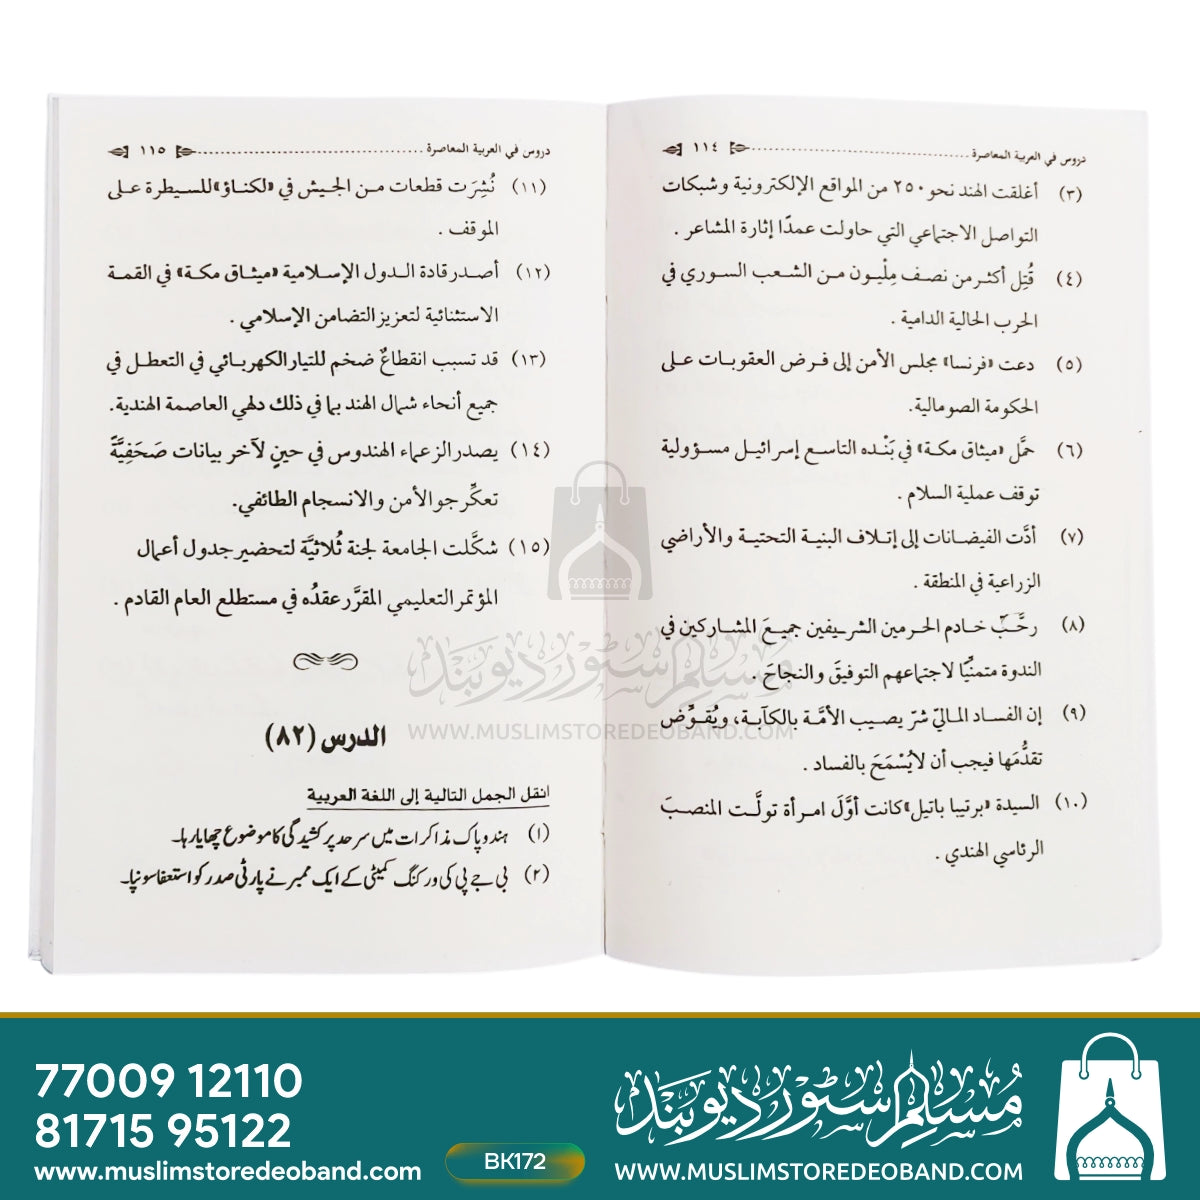 دروس في العربية المعاصرة ١١٤
(٣) أغلقت الهند نحو ٢٥٠ من المواقع الإلكترونية وشبكات
التواصل الاجتماعي التي حاولت عمدًا إثارة المشاعر .
(٤) قُتِل أكثر من نصف مِلْيون من الشعب السوري في
الحرب الحالية الدامية .
(٥) دعت «فرنسا» مجلس الأمن إلى فرض العقوبات على
الحكومة الصومالية.
(٦) حمَّل «ميثاق مكة» في بَنْده التاسع إسرائيل مسؤولية
توقف عملية السلام .
(٧) أدَّت الفيضانات إلى إتلاف البنية التحتية والأراضي
الزراعية في المنطقة .
(٨) رحَّبَ خادم الحرمين الشريفين جميعَ المشاركين في
الندوة متمنِّيًا لاجتماعهم التوفيقَ والنجاحَ .
(٩) إن الفساد الماليّ شرّ يصيب الأمَّة بالكآبة، ويُقوِّض
تقدُّمَها فيجب أن لايُسْمَحَ بالفساد .
(١٠) السيدة «برتيبا باتيل» كانت أوَّلَ امرأة تولَّت المنصبَ
الرئاسي الهندي .
دروس في العربية المعاصرة ١١٥
(١١) نُشِرَت قطعات من الجيش في «لكناؤ» للسيطرة على
الموقف .
(١٢) أصدر قادة الدول الإسلامية «ميثاق مكة» في القمة
الاستثنائية لتعزيز التضامن الإسلامي .
(١٣) قد تسبب انقطاعٌ ضخم للتيار الكهربائي في التعطل في
جميع أنحاء شمال الهند بما في ذلك دلهي العاصمة الهندية.
(١٤) يصدر الزعماء الهندوس في حينٍ لآخر بيانات صَحَفِيَّةً
تعكِّر جو الأمن والانسجام الطائفي.
(١٥) شكَّلت الجامعة لجنة ثُلاثيَّة لتحضير جدول أعمال
المؤتمر التعليمي المقرَّر عقدُه في مستطلع العام القادم .
الدرس (٨٢)
انقل الجمل التالية إلى اللغة العربية
(١) ہند و پاک مذاکرات میں سرحد پر کشیدگی کا موضوع چھایا رہا۔
(٢) بی جے پی کی ورکنگ کمیٹی کے ایک ممبر نے پارٹی صدر کو استعفا سونپا۔
مسلم سٹور دیوبند
WWW.MUSLIMSTOREDEOBAND.COM
77009 12110
81715 95122
www.muslimstoredeoband.com
BK172
مسلم سٹور دیوبند
WWW.MUSLIMSTOREDEOBAND.COM